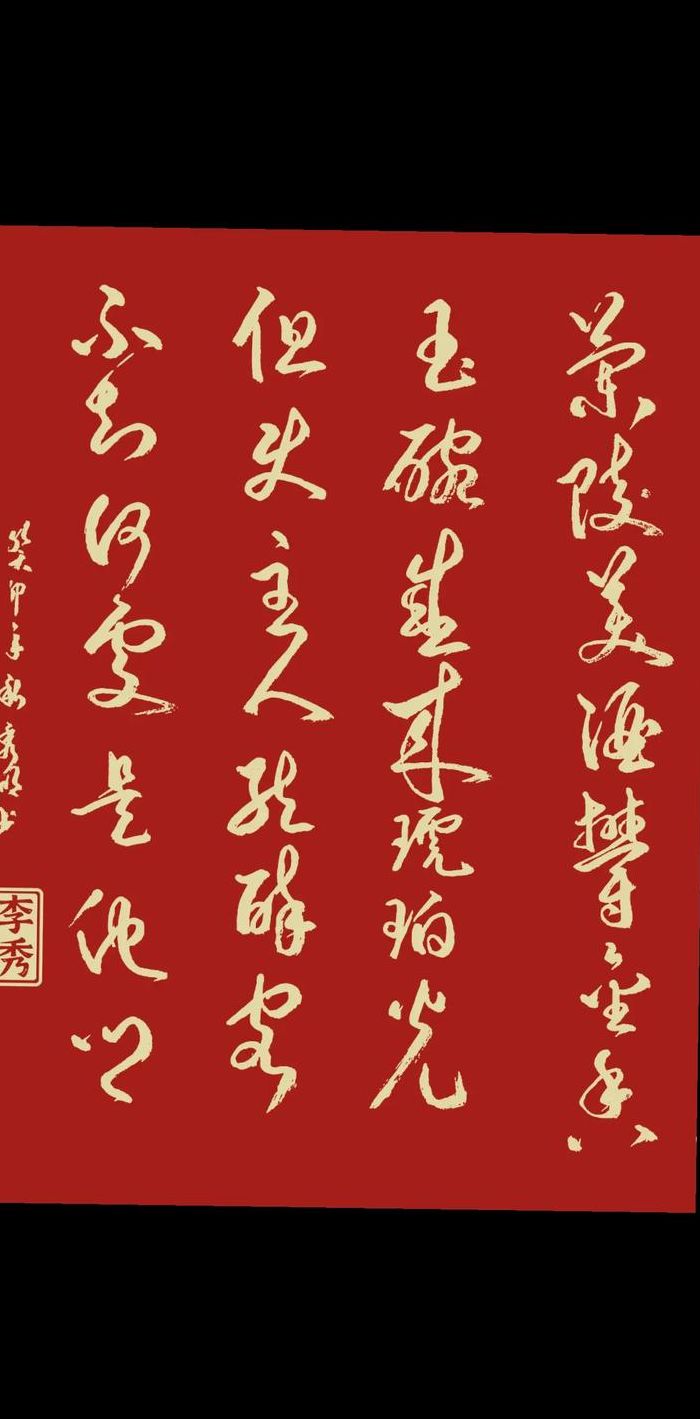 蘭陵美酒鬱金香
玉碗盛來琥珀光
但使主人能醉客
不知何處是他鄉
癸卯年秋秀
李秀